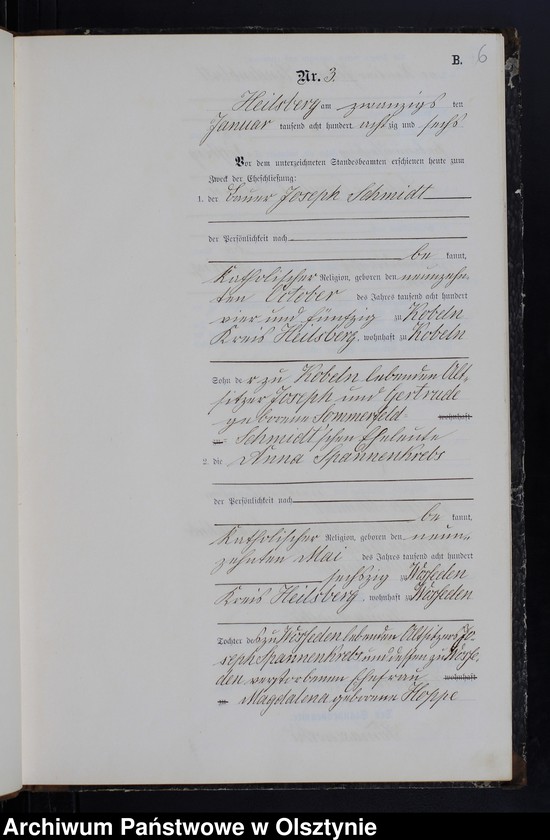 B. 6
Nr. 3.
Heilsberg am zwanzigs ten
Januar tausend acht hundert acht zig und sechs
Vor dem unterzeichneten Standesbeamten erschienen heute zum
Zweck der Eheschließung:
1. der Bauer Joseph Schmidt
der Persönlichkeit nach
be kannt,
Katholischer Religion, geboren den neunzehn-
ten October des Jahres tausend acht hundert
vier und fünfzig zu Kobeln
Kreis Heilsberg, wohnhaft zu Kobeln
Sohn de r zu Kobeln lebenden Alt-
sitzer Joseph und Gertrude
geborene Sommerfeld wohnhaft
zu Schmidt'schen Eheleute
2. die Anna Spannenkrebs
der Persönlichkeit nach
be kannt,
Katholischer Religion, geboren den neun-
zehnten Mai des Jahres tausend acht hundert
sechszig zu Wosseden
Kreis Heilsberg, wohnhaft zu Wosseden
Tochter des zu Wosseden lebenden Altsitzers Jo-
seph Spannenkrebs und dessen zu Wosse-
den verstorbenen Ehefrau wohnhaft
zu Magdalena geborene Hoppe
Archiwum Państwowe w Olsztynie